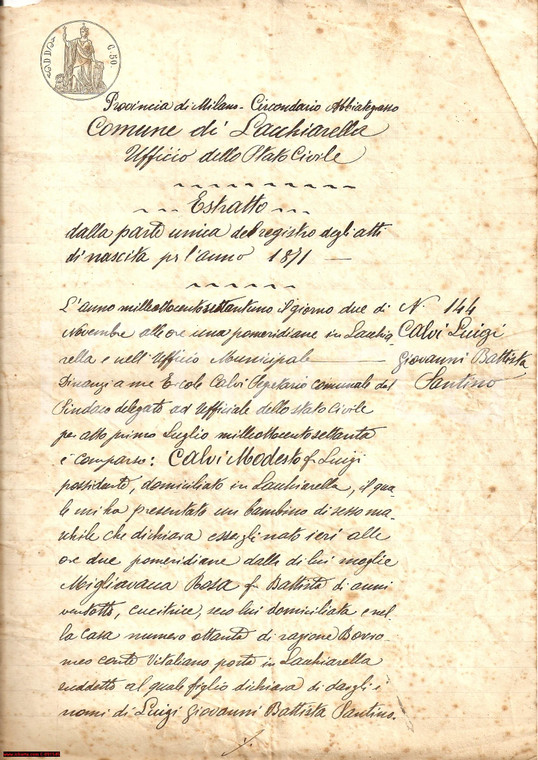 C. 50
Provincia di Milano - Circondario Abbiategrasso
Comune di Lacchiarella
Ufficio dello Stato Civile
Estratto
dalla parte unica del registro degli atti
di nascita pr l'anno 1871 —
L'anno milleottocentosettantuno il giorno due di
Novembre alle ore una pomeridiane in Lacchia
rella e nell'Ufficio Municipale
Dinanzi a me Ercole Calvi Segretario comunale dal
Sindaco delegato ad Uffiziale dello Stato Civile
per atto primo Luglio milleottocentosettanta
è comparso: Calvi Modesto fu Luigi
possidente, domiciliato in Lacchiarella, il qua-
le mi ha presentato un bambino di sesso ma-
schile che dichiara essergli nato ieri alle
ore due pomeridiane dalla di lui moglie
Migliavacca Rosa fu Battista di anni
ventotto, cucitrice, seco lui domiciliata e nel-
la casa numero ottanta di ragione Borro
meo conte Vitaliano posta in Lacchiarella
suddetto al quale figlio dichiara di dargli i
nomi di Luigi Giovanni Battista Santino.
N. 144
Calvi Luigi
Giovanni Battista
Santino